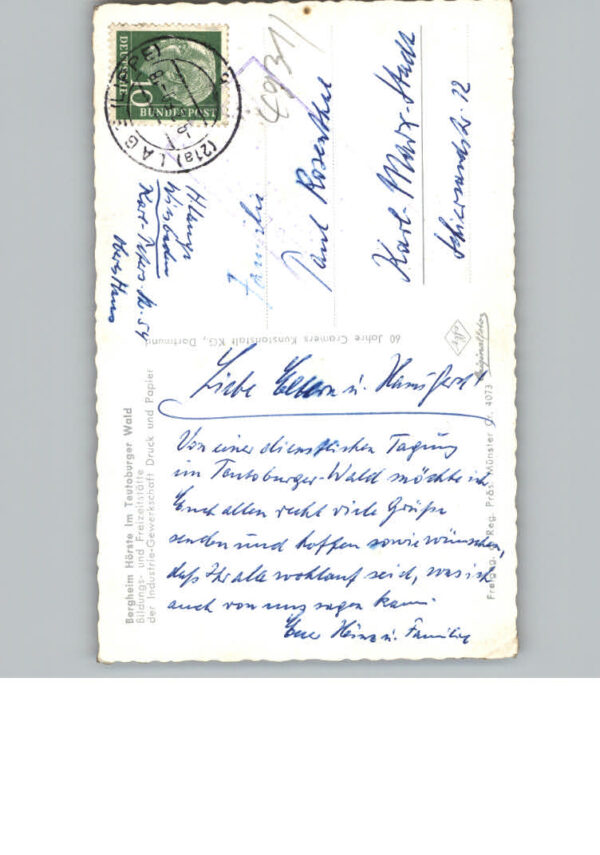 Liebe Eltern u. Hansgerd!
Von einer dienstlichen Tagung
im Teutoburger-Wald möchte ich
Euch allen recht viele Grüße
senden und hoffen sowie wünschen,
daß Ihr alle wohlauf seid, was ich
auch von uns sagen kann.
Euer Heinz u. Familie
Familie
Paul Rosenthal
Karl-Marx-Stadt
H. Lange
Wiesbaden
Karl-Peters-Str. 54
4931
DEUTSCHE
BUNDESPOST
10
(21a) LAGE (LIPPE)
60 Jahre Cramers Kunstanstalt KG., Dortmund
Bergheim Hörste im Teutoburger Wald
Bildungs- und Freizeitstätte
der Industrie-Gewerkschaft Druck und Papier
Freigeg. d. Reg. Präs. Münster Nr. 4073
Originalfoto